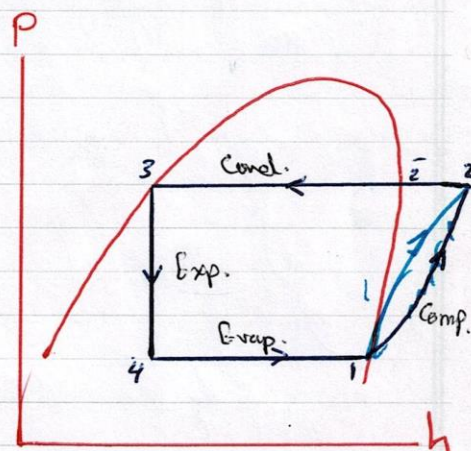 P
3
Cond.
2̄
2
Exp.
Comp.
Evap.
4
1
h